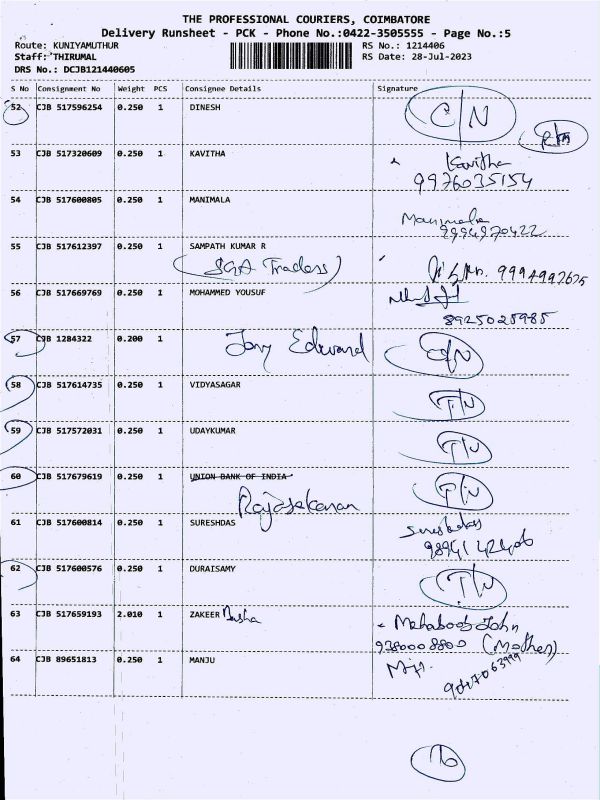 THE PROFESSIONAL COURIERS, COIMBATORE
Delivery Runsheet - PCK - Phone No.:0422-3505555 - Page No.:5
Route: KUNIYAMUTHUR RS No.: 1214406
Staff: THIRUMAL RS Date: 28-Jul-2023
DRS No.: DCJB121440605
S No Consignment No Weight PCS Consignee Details Signature
52 CJB 517596254 0.250 1 DINESH C/N
53 CJB 517320609 0.250 1 KAVITHA Kavitha
9976035154
54 CJB 517600805 0.250 1 MANIMALA Manimala
9994970422
55 CJB 517612397 0.250 1 SAMPATH KUMAR R
(SGA Traders)
56 CJB 517669769 0.250 1 MOHAMMED YOUSUF
8925025985
57 CJB 1284322 0.200 1 Tony Edward
58 CJB 517614735 0.250 1 VIDYASAGAR T/N
59 CJB 517572031 0.250 1 UDAYKUMAR T/N
60 CJB 517679619 0.250 1 UNION BANK OF INDIA T/N
Rajasekaran
61 CJB 517600814 0.250 1 SURESHDAS Sureshdas
62 CJB 517600576 0.250 1 DURAISAMY T/N
63 CJB 517659193 2.010 1 ZAKEER Mahaboob John
(Mother)
64 CJB 89651813 0.250 1 MANJU